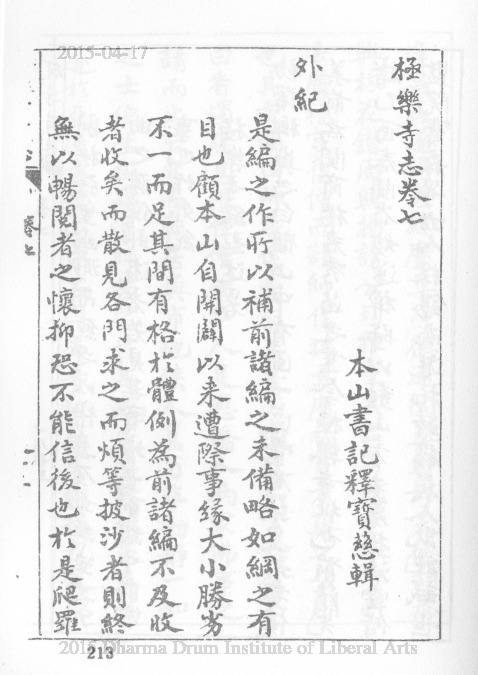 2015-04-17
極樂寺志卷七
本山書記釋寶慈輯
外紀
是編之作所以補前諸編之未備略如綱之有
目也顧本山自開闢以來遭際事緣大小勝劣
不一而足其間有格於體例為前諸編不及收
者收矣而散見各門求之而煩等披沙者則終
無以暢閱者之懷抑恐不能信後也於是爬羅
卷七
213
2015 Dharma Drum Institute of Liberal Arts